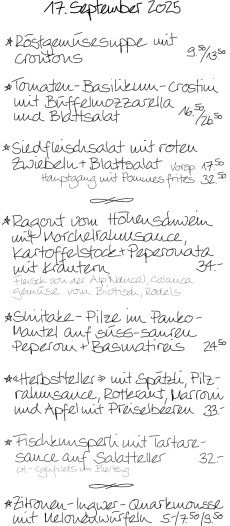 17. September 2025
* Röstgemüsesuppe mit
croûtons 9.50/13.50
* Tomaten-Basilikum-Crostini
mit Büffelmozzarella
und Blattsalat 16.50/26.50
* Siedfleischsalat mit roten
Zwiebeln + Blattsalat Vorsp. 17.50
Hauptgang mit Pommes frites 32.50
* Ragout vom Höhenschwein
mit Morchelrahmsauce,
Kartoffelstock + Peperonata
mit Kräutern 34.-
Fleisch von der Alp Nancal, Calanca
gemüse vom Biotisch, Rodels
* Shiitake-Pilze im Panko-
Mantel auf süss-sauren
Peperoni + Basmatireis 24.50
* «Herbstteller» mit Spätzli, Pilz-
rahmsauce, Rotkraut, Marroni
und Apfel mit Preiselbeeren 33.-
* Fischknusperli mit Tartare-
sauce auf Salatteller 32.-
CH-Eglifilets im Bierteig
* Zitronen-Ingwer-Quarkmousse
mit Melonenwürfeln 5.-/7.50/9.50